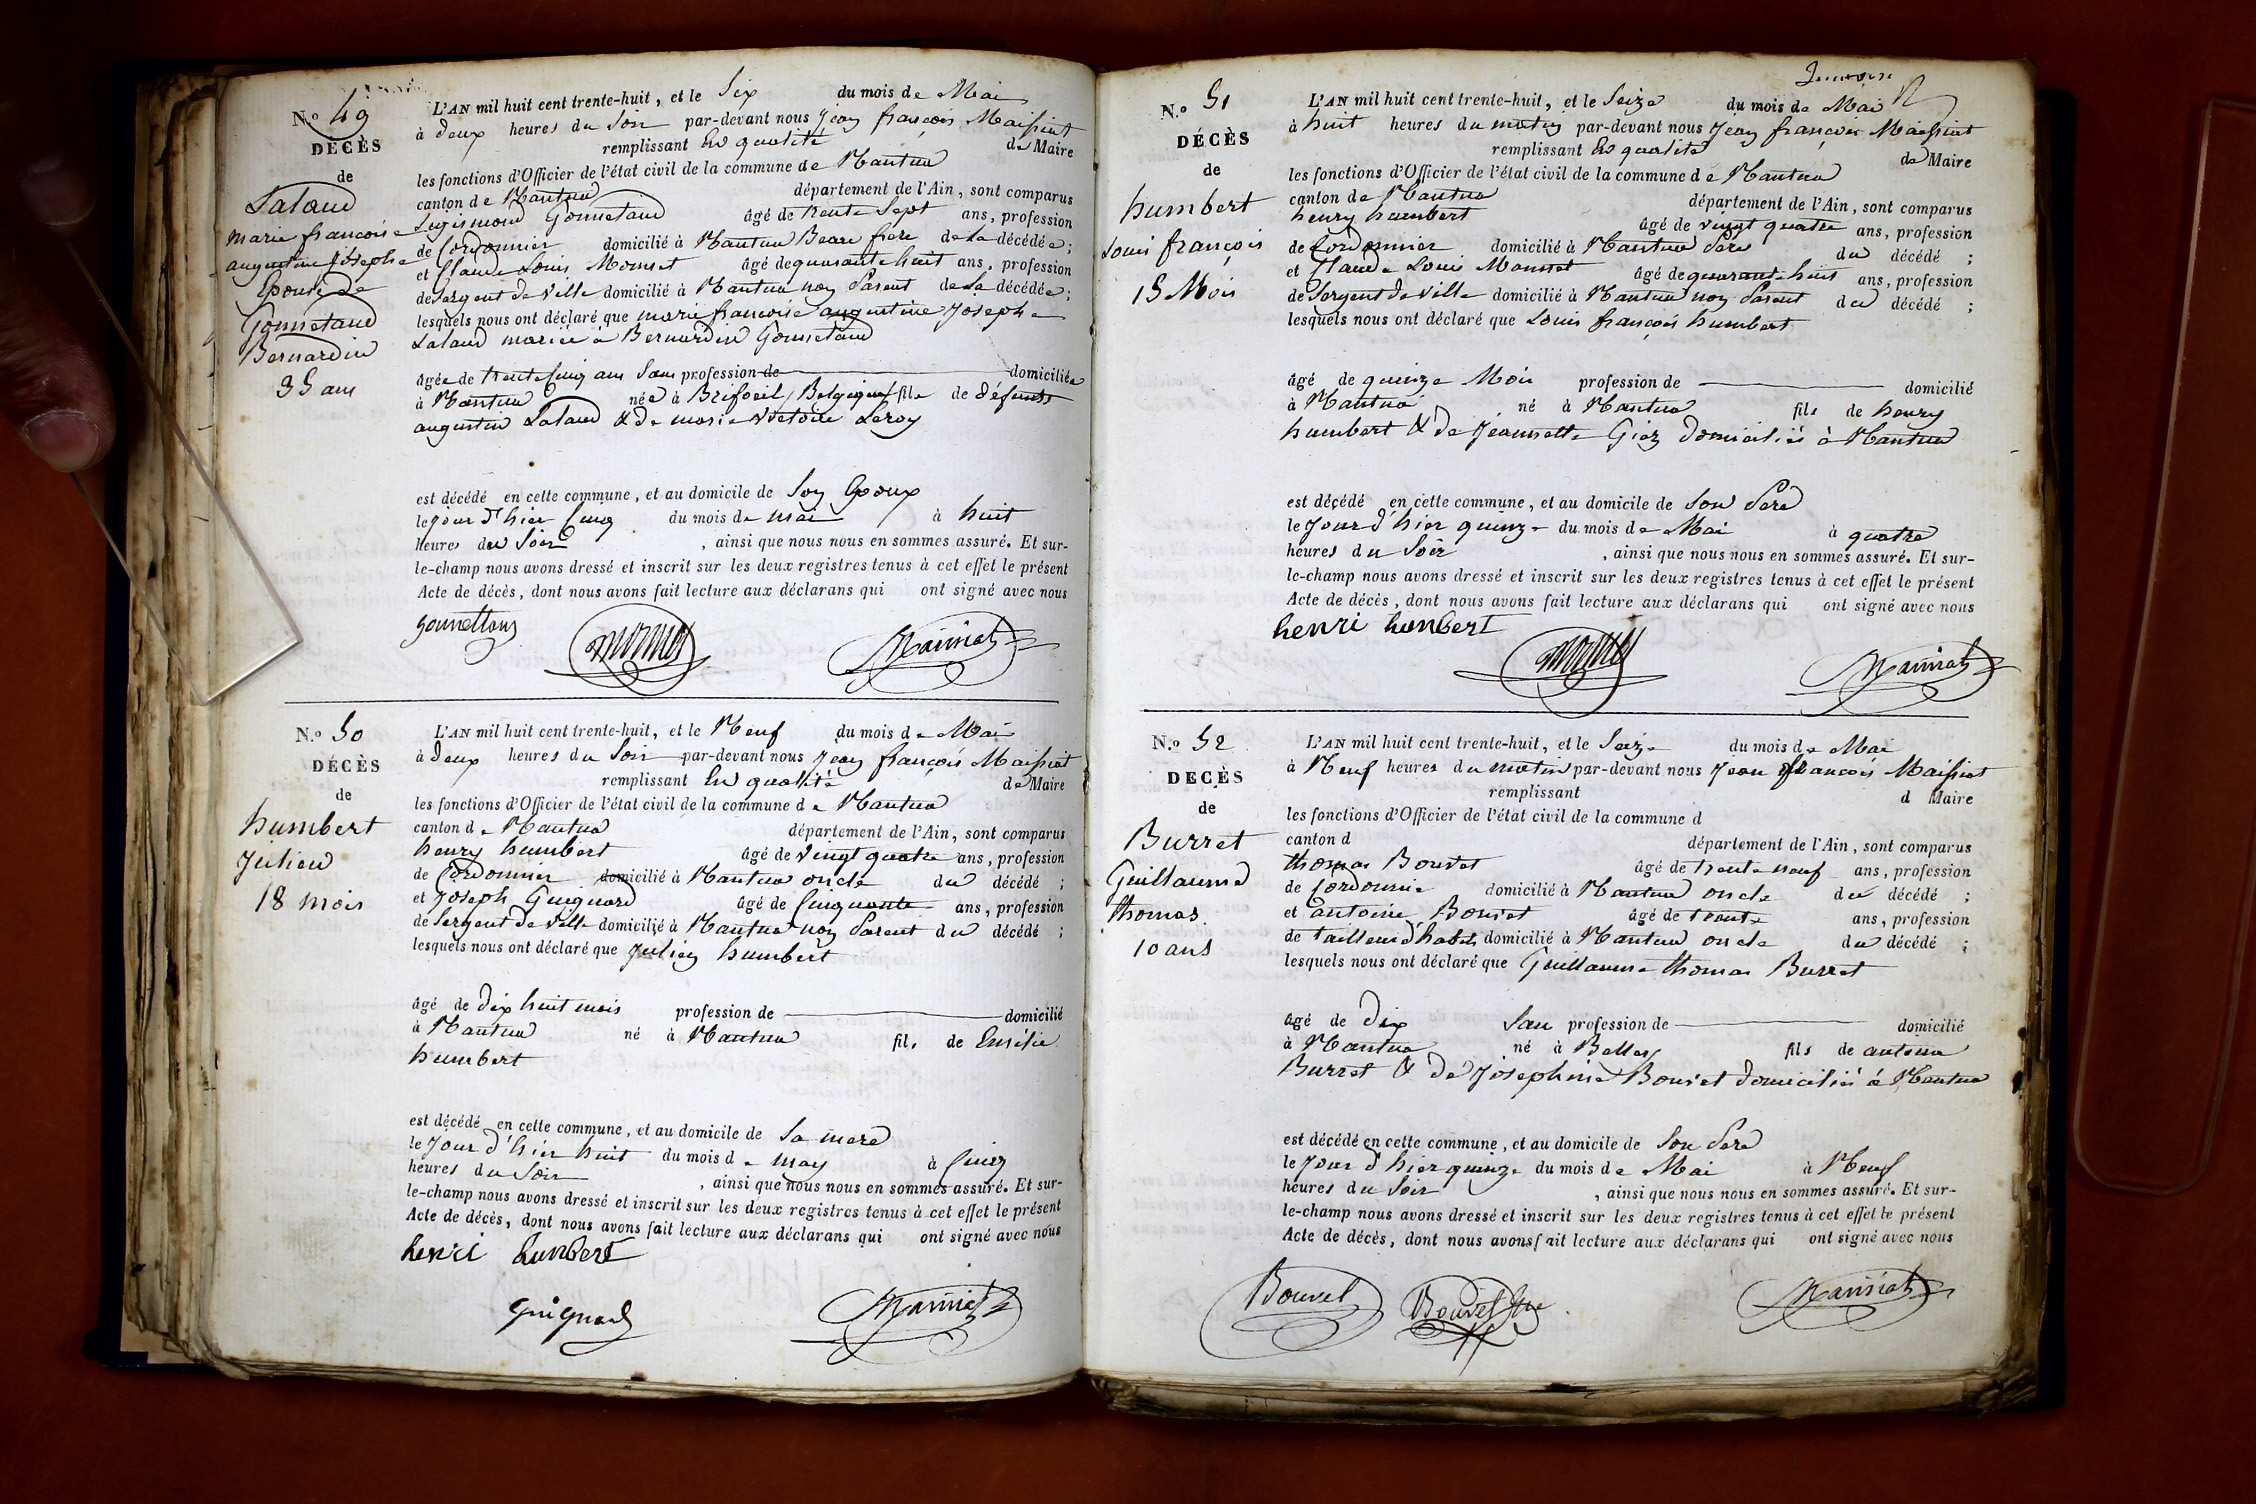 N.º 49
DÉCÈS
de
Lalaud
marie francoise
augustine josephe
Epouse de
Gonnetaud
Bernardin
35 ans
L'AN mil huit cent trente-huit, et le Six du mois de Mai
à deux heures du Soir par-devant nous Jean françois Maissiat
remplissant En qualité de Maire
les fonctions d'Officier de l'état civil de la commune de Nantua
canton de Nantua département de l'Ain, sont comparus
Sigismond Gonnetaud âgé de trente Sept ans, profession
de Cordonnier domicilié à Nantua Beau frère de La décédée;
et Claude Louis Mounet âgé de quarante huit ans, profession
de Sergent de ville domicilié à Nantua non Parent de La décédée;
lesquels nous ont déclaré que marie francoise augustine Josephe
Lalaud mariée à Bernardin Gonnetaud
âgée de trente cinq ans Sans profession de domiciliée
à Nantua née à Brifoeil, Belgique, fille de défunts
augustin Lalaud & de marie victoire Leroy
est décédé en cette commune, et au domicile de Son Epoux
le jour d'hier Cinq du mois de mai à huit
heures du Soir, ainsi que nous nous en sommes assuré. Et sur-
le-champ nous avons dressé et inscrit sur les deux registres tenus à cet effet le présent
Acte de décès, dont nous avons fait lecture aux déclarans qui ont signé avec nous
Maissiat
N.º 50
DÉCÈS
de
humbert
Julien
18 mois
L'AN mil huit cent trente-huit, et le Neuf du mois de Mai
à deux heures du Soir par-devant nous Jean françois Maissiat
remplissant En qualité de Maire
les fonctions d'Officier de l'état civil de la commune de Nantua
canton de Nantua département de l'Ain, sont comparus
henry humbert âgé de vingt quatre ans, profession
de Cordonnier domicilié à Nantua oncle du décédé;
et Joseph Guignard âgé de Cinquante ans, profession
de Sergent de ville domicilié à Nantua non Parent du décédé;
lesquels nous ont déclaré que Julien humbert
âgé de dix huit mois profession de domicilié
à Nantua né à Nantua fils de Emélie
humbert
est décédé en cette commune, et au domicile de Sa mere
le Jour d'hier huit du mois de may à Cinq
heures du Soir, ainsi que nous nous en sommes assuré. Et sur-
le-champ nous avons dressé et inscrit sur les deux registres tenus à cet effet le présent
Acte de décès, dont nous avons fait lecture aux déclarans qui ont signé avec nous
henri humbert
Guignard Maissiat
N.º 51
DÉCÈS
de
humbert
Louis françois
15 Mois
L'AN mil huit cent trente-huit, et le Seize du mois de Mai
à huit heures du matin par-devant nous Jean françois Maissiat
remplissant En qualité de Maire
les fonctions d'Officier de l'état civil de la commune de Nantua
canton de Nantua département de l'Ain, sont comparus
henry humbert âgé de vingt quatre ans, profession
de Cordonnier domicilié à Nantua Père du décédé;
et Claude Louis Mounet âgé de quarante huit ans, profession
de Sergent de ville domicilié à Nantua non Parent du décédé;
lesquels nous ont déclaré que Louis françois humbert
âgé de quinze Mois profession de domicilié
à Nantua né à Nantua fils de henry
humbert & de Jeannette domiciliés à Nantua
est décédé en cette commune, et au domicile de Son Père
le Jour d'hier quinze du mois de Mai à quatre
heures du Soir, ainsi que nous nous en sommes assuré. Et sur-
le-champ nous avons dressé et inscrit sur les deux registres tenus à cet effet le présent
Acte de décès, dont nous avons fait lecture aux déclarans qui ont signé avec nous
henri humbert
Maissiat
N.º 52
DÉCÈS
de
Burret
Guillaume
thomas
10 ans
L'AN mil huit cent trente-huit, et le Seize du mois de Mai
à Neuf heures du matin par-devant nous Jean françois Maissiat
remplissant d Maire
les fonctions d'Officier de l'état civil de la commune d
canton d département de l'Ain, sont comparus
thomas Bouvet âgé de trente neuf ans, profession
de Cordonnier domicilié à Nantua oncle du décédé;
et antoine Bouvet âgé de trente ans, profession
de tailleur d'habits domicilié à Nantua oncle du décédé;
lesquels nous ont déclaré que Guillaume thomas Burret
âgé de dix Sans profession de domicilié
à Nantua né à Belley fils de antoine
Burret & de Josephine Bouvet domiciliés à Nantua
est décédé en cette commune, et au domicile de Son Père
le Jour d'hier quinze du mois de Mai à Neuf
heures du Soir, ainsi que nous nous en sommes assuré. Et sur-
le-champ nous avons dressé et inscrit sur les deux registres tenus à cet effet le présent
Acte de décès, dont nous avons fait lecture aux déclarans qui ont signé avec nous
Bouvet Bouvet Maissiat